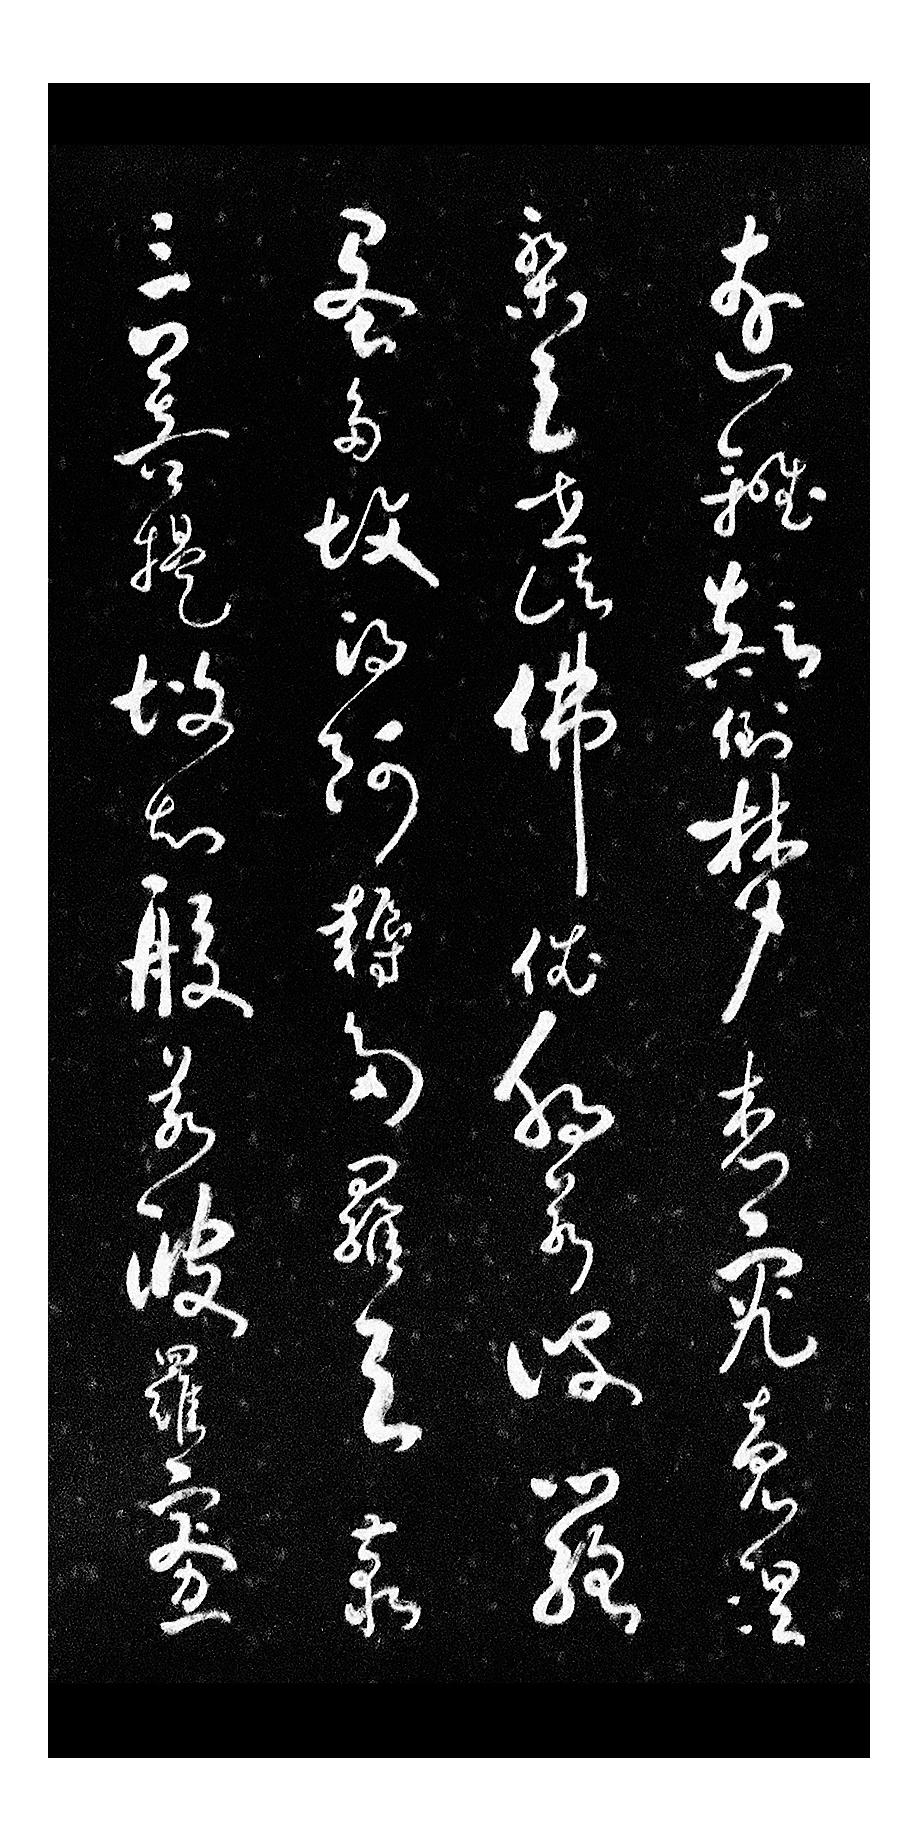 遠離顛倒夢想究竟涅
槃三世諸佛依般若波羅
蜜多故得阿耨多羅三藐
三菩提故知般若波羅蜜